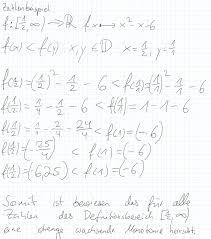 Zahlenbeispiel
f: [1/2, ∞) → ℝ f x ↦ x² - x - 6
f(x) < f(y) x, y ∈ D x = 1/2, y = 1
f(1/2) = (1/2)² - 1/2 - 6 < f(1) = (1)² - 1 - 6
f(1/2) = 1/4 - 1/2 - 6 < f(1) = 1 - 1 - 6
f(1/2) = 1/4 - 2/4 - 24/4 < f(1) = (-6)
f(1/2) = (-25/4) < f(1) = (-6)
f(1/2) = (-6,25) < f(1) = (-6)
Somit ist bewiesen das für alle
Zahlen des Definitionsbereich [1/2, ∞)
eine strenge wachsende Monotonie herrscht.